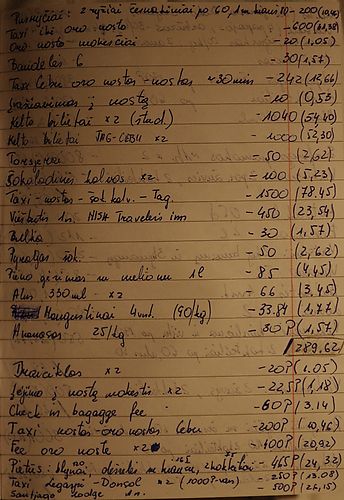 Pusryčiai: 2 ryžiai po 60, - 200 (10,46)
Taxi iki oro uosto - 600 (31,38)
Oro uosto mokesčiai - 20 (1,05)
Bandelės 6 - 30 (1,57)
Taxi Cebu oro uostas-uostas ~30min - 242 (12,66)
Įvažiavimas į uostą - 10 (0,53)
Kelto bilietai x2 (stud.) - 1040 (54,40)
Kelto bilietai TAG-CEBU x2 - 1000 (52,30)
- 50 (2,62)
Šokoladinės kalvos x2 - 100 (5,23)
Taxi - uostas - šok. kalv. - Tag. - 1500 (78,45)
Viešbutis 1n. Nisa Travelers inn - 450 (23,54)
- 30 (1,57)
Pyragas šok. - 50 (2,62)
Pieno gėrimas su melionu 1l - 85 (4,45)
Alus 330ml x2 - 66 (3,45)
Mangustinai 4vnt. (90/kg) - 33.84 (1,77)
Ananasas 25/kg - 30P (1,57)
289.62
Traiciklas x2 - 20P (1.05)
Įėjimo į uostą mokestis x2 - 22,5P (1,18)
Check in bagagge fee - 60P (3.14)
Taxi uostas-oro uostas Cebu - 200P (10,46)
Fee oro uoste x2 - 400P (20,92)
- 465P (24,32)
Taxi Legaspi - Donsol x2 (1000P-van) - 250P (13.08)
Santiago Lodge 1n. - 500P (26,15)